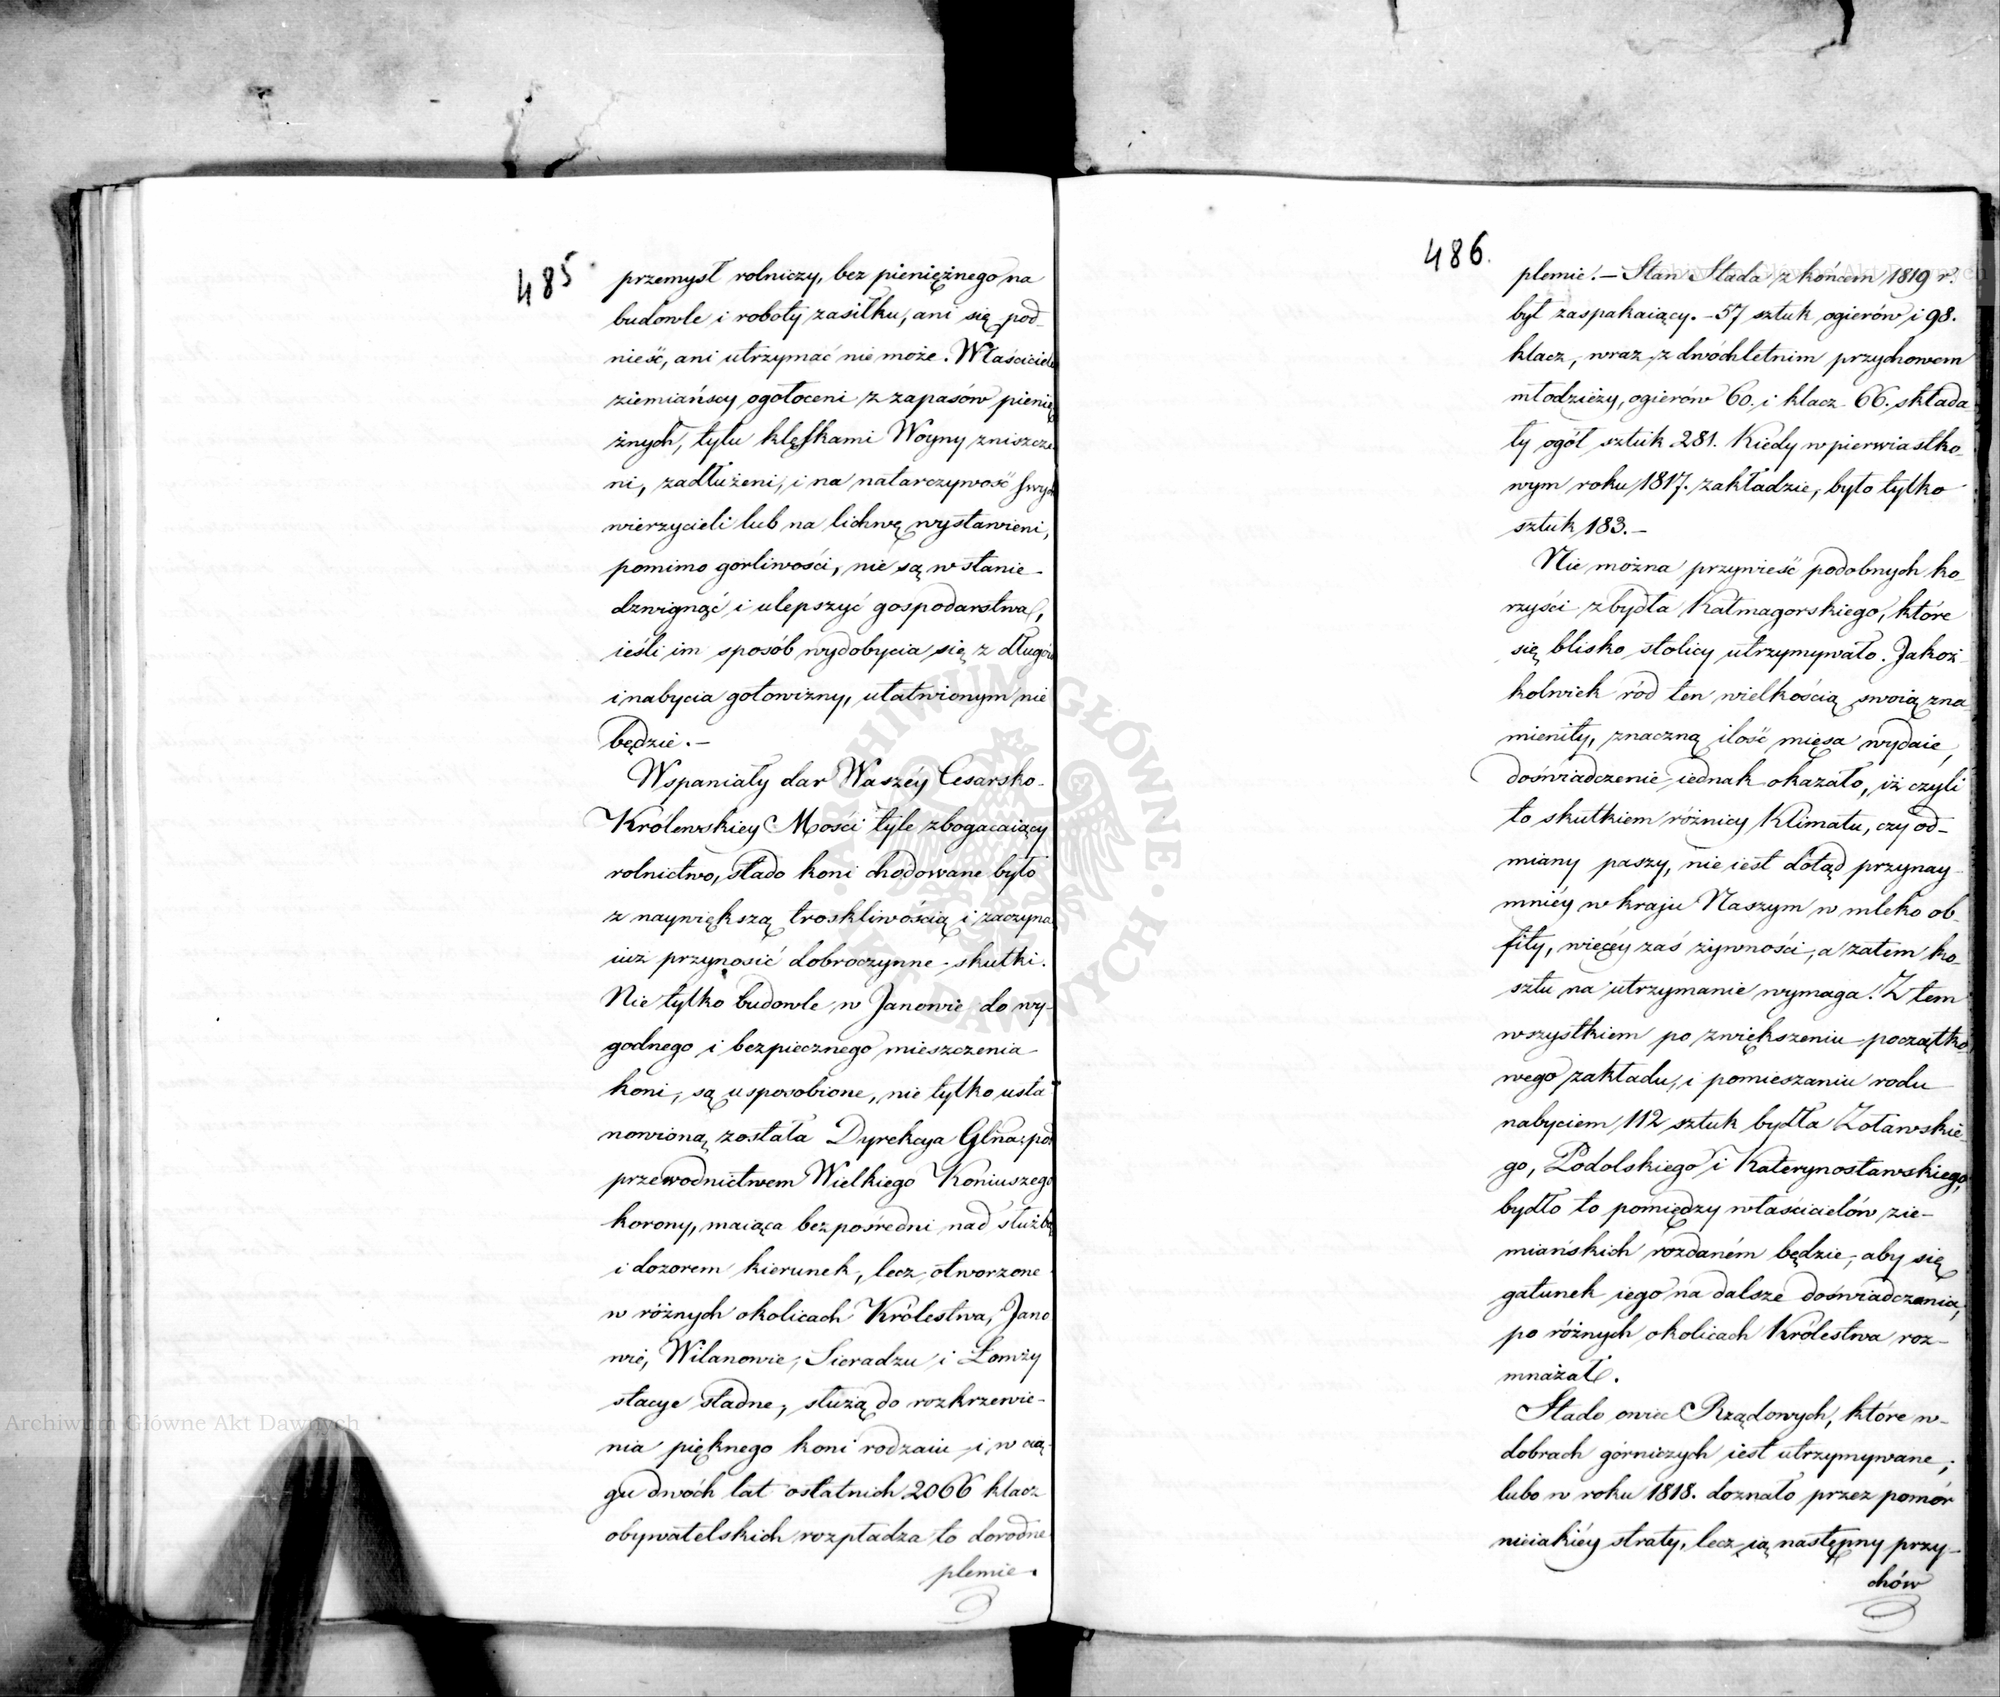 485
przemysł rolniczy, bez pieniężnego na
budowle i roboty zasiłku, ani się pod-
nieść, ani utrzymać nie może. Właściciele
ziemiańscy ogołoceni z zapasów pienię
żnych, tylu klęskami Woyny zniszcze
ni, zadłużeni, i na natarczywość swych
wierzycieli lub na lichwę wystawieni,
pomimo gorliwości, nie są w stanie
dzwignąć i ulepszyć gospodarstwa,
ieśli im sposób wydobycia się z długów
i nabycia gotowizny, ułatwionym nie
będzie. –
Wspaniały dar Waszéy Cesarsko-
Królewskiey Mości tyle zbogacaiący
rolnictwo, stado koni chodowane było
z naywiększą troskliwością i zaczyna
iuż przynosić dobroczynne skutki.
Nie tylko budowle w Janowie do wy-
godnego i bezpiecznego mieszczenia
koni, są usposobione, nie tylko usta-
nowioną została Dyrekcya Glna, pod
przewodnictwem Wielkiego Koniuszego
korony, maiąca bezpośredni nad służbą
i dozorem kierunek, lecz otworzone
w różnych okolicach Królestwa, Jano
wie, Wilanowie, Sieradzu i Łomży
stacye stadne, służą do rozkrzewie-
nia pięknego koni rodzaiu i w cią-
gu dwóch lat ostatnich 2066 klacz
obywatelskich rozpładza to dorodne
plemie.
486.
plemie. – Stan Stada z końcem 1819 r.
był zaspakaiący. – 57 sztuk ogierów i 98.
klacz, wraz z dwóchletnim przychowem
młodzieży, ogierów 60. i klacz 66. składa
ły ogół sztuk 281. Kiedy w pierwiastko-
wym roku 1817. zakładzie, było tylko
sztuk 183. –
Nie można przywieść podobnych ko-
rzyści z bydła Kałmagorskiego, które
się blisko stolicy utrzymywało. Jakoż-
kolwiek ród ten wielkością swoią zna-
mienity, znaczną ilość mięsa wydaie,
doświadczenie iednak okazało, iż czyli
to skutkiem różnicy Klimatu, czy od-
miany paszy, nie iest dotąd przynay-
mniéy w kraju Naszym w mleko ob-
fity, więcéy zaś żywności, a zatem ko-
sztu na utrzymanie wymaga. Z tem
wszystkiem po zwiększeniu początko
wego zakładu, i pomieszaniu rodu
nabyciem 112 sztuk bydła Żoławskie-
go, Podolskiego i Katerynosławskiego,
bydło to pomiędzy właścicielów zie-
miańskich rozdaném będzie, aby się
gatunek iego na dalsze doświadczenia,
po różnych okolicach Królestwa roz-
mnażał.
Stado owiec Rządowych, które w
dobrach górniczych iest utrzymywane,
lubo w roku 1818. doznało przez pomór
nieiakiéy straty, lecz ią następny przy-
chów
Archiwum Główne Akt Dawnych
Archiwum Główne Akt Dawnych
ARCHIWUM GŁÓWNE AKT DAWNYCH